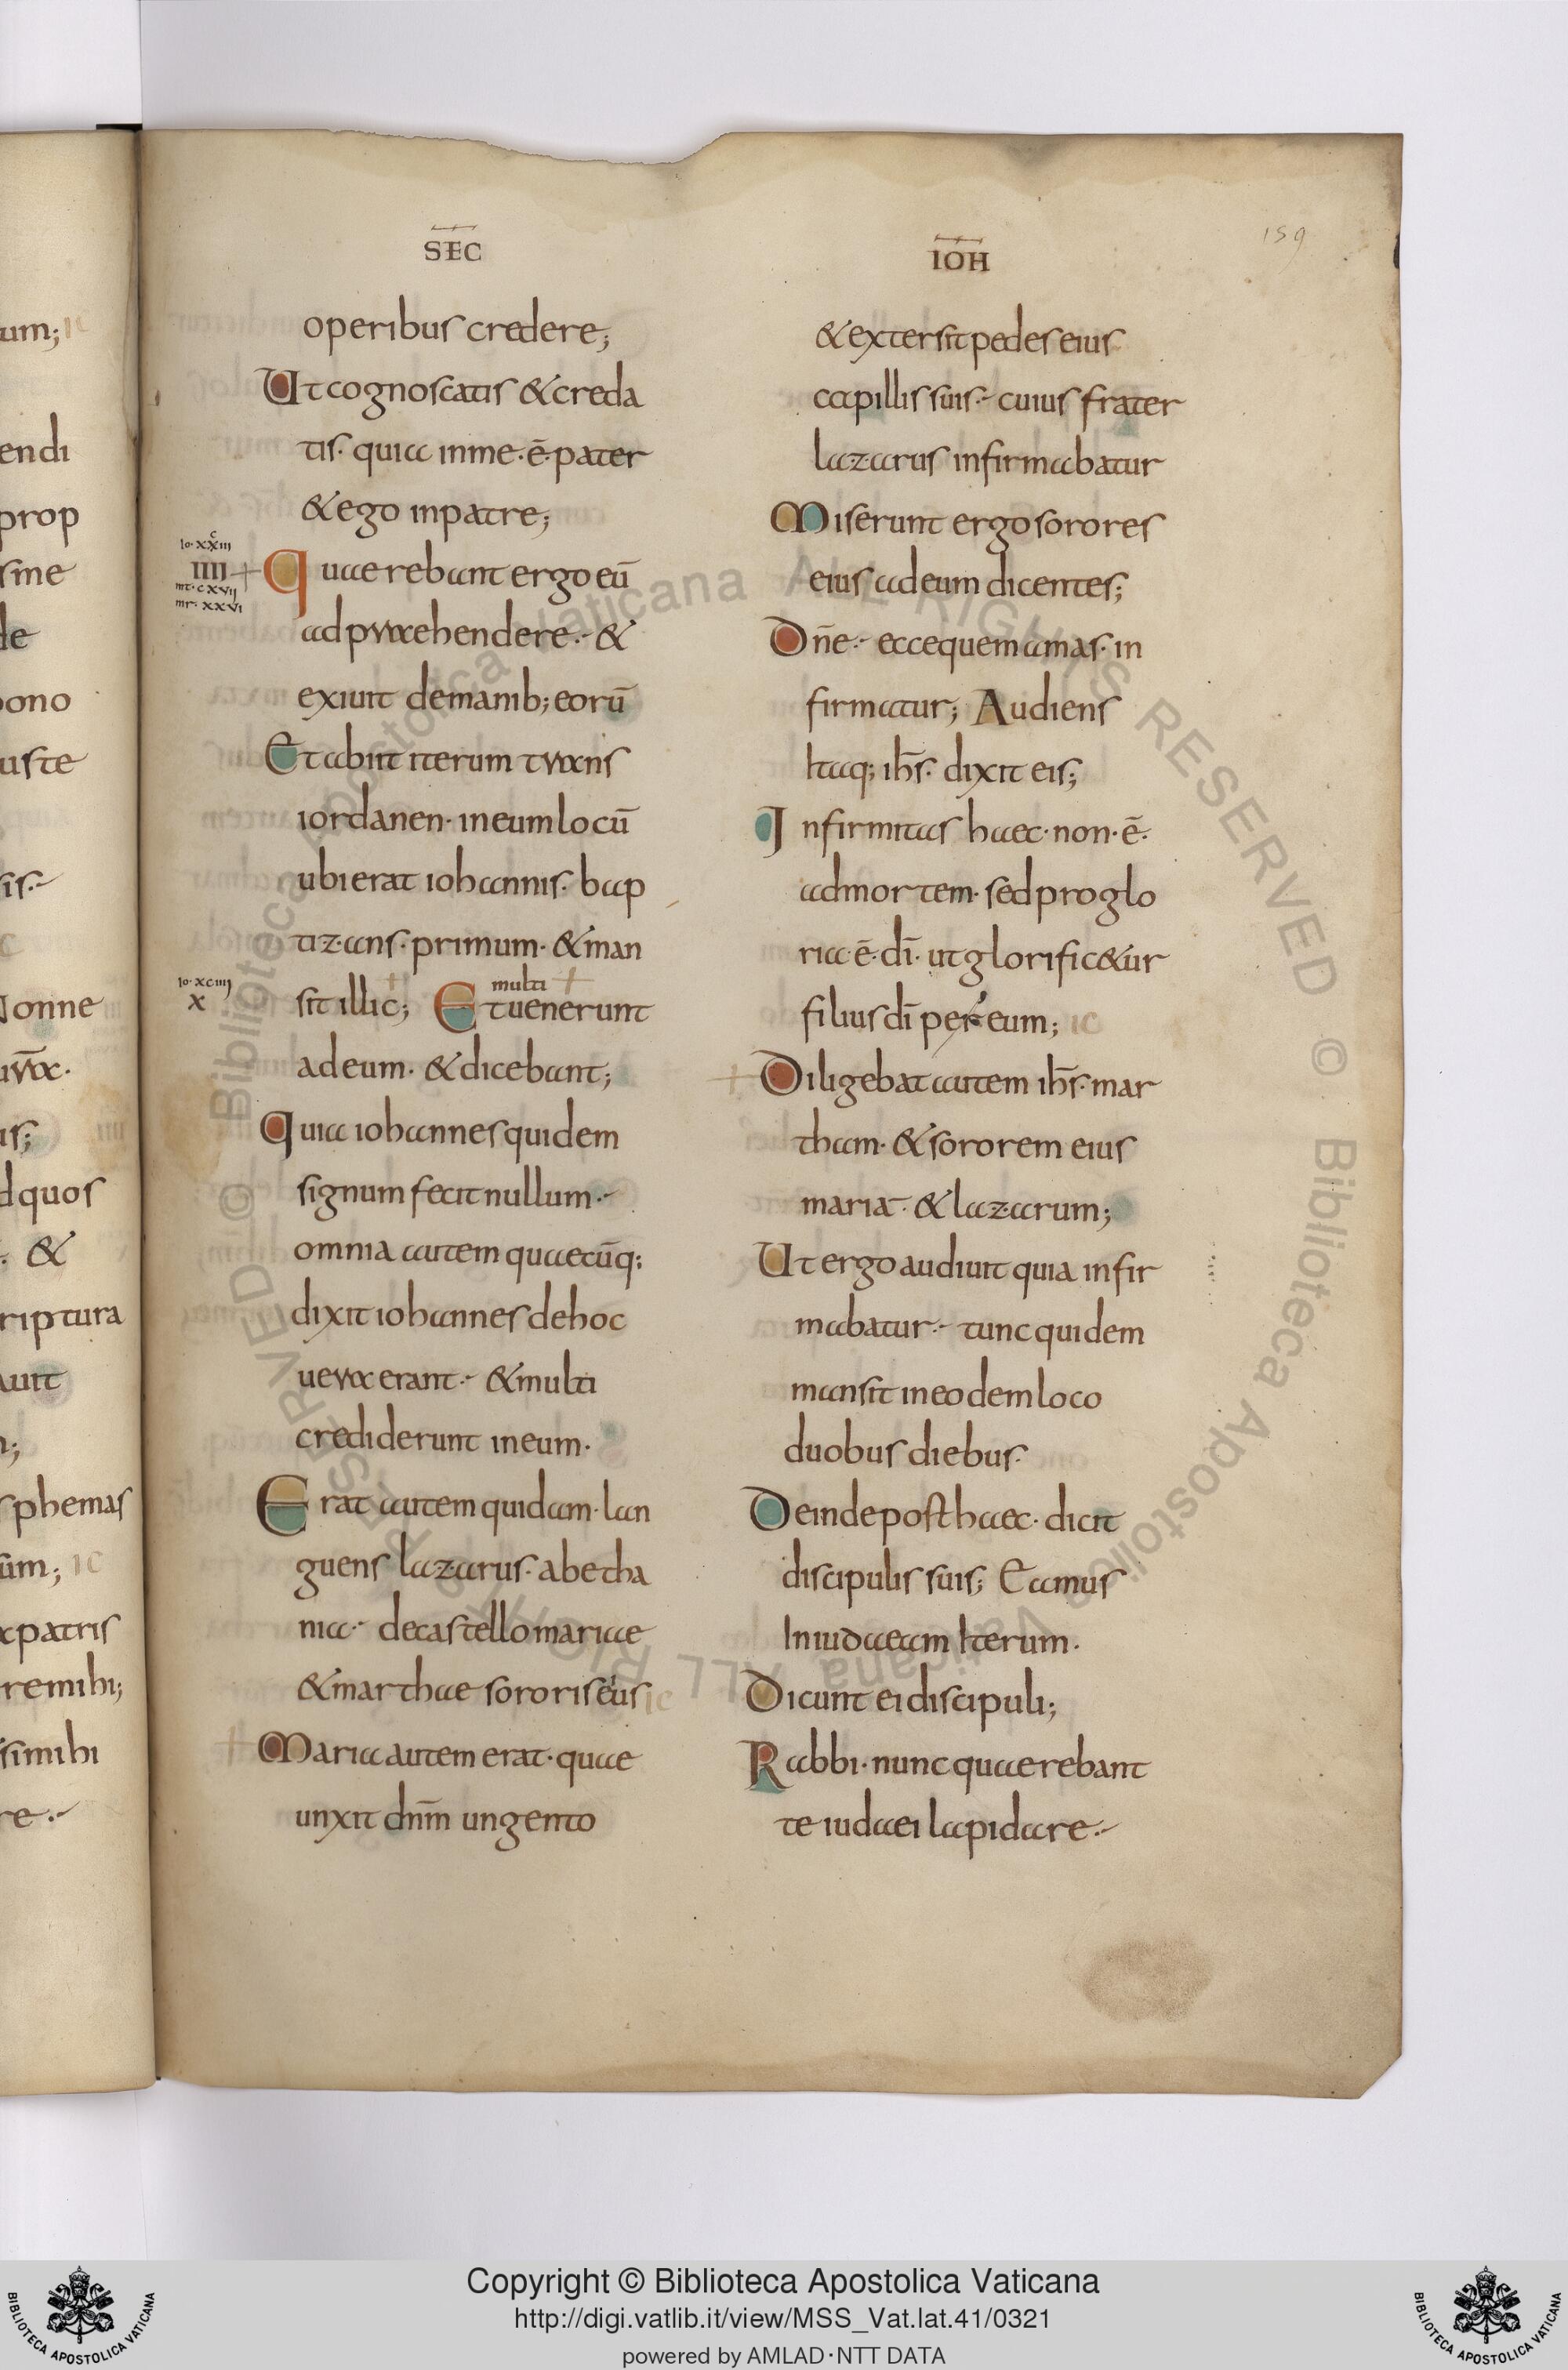 SEC
operibus credere;
Ut cognoscatis & creda
tis. quia in me. ē. pater
& ego in patre;
Io. xciii
IIII
mt. cxvii
mr. xxvi
Quaerebant ergo eū
adpraehendere. &
exiuit de manib; eorū
Et abiit iterum trans
iordanen. in eum locū
ubi erat iohannis. bap
tizans. primum. & man
Io. xciiii
X
sit illic; Et uenerunt
multi
ad eum. & dicebant;
Quia iohannes quidem
signum fecit nullum.
omnia autem quaecūq;
dixit iohannes de hoc
uera erant. & multi
crediderunt in eum.
Erat autem quidam. lan
guens lazarus. a betha
nia. de castello mariae
& marthae sororis eius
Maria autem erat. quae
unxit dn̄m ungento
IOH
159
& extersit pedes eius
capillis suis. cuius frater
lazarus infirmabatur
Miserunt ergo sorores
eius ad eum dicentes;
Dn̄e. ecce quem amas. in
firmatur; Audiens
Itaq; ih̄s. dixit eis;
Infirmitas haec. non. ē.
ad mortem. sed pro glo
ria. ē. dī. ut glorific&ur
filius dī per eum;
Diligebat autem ih̄s. mar
tham. & sororem eius
mariā. & lazarum;
Ut ergo audiuit quia infir
mabatur. tunc quidem
mansit in eodem loco
duobus diebus.
Deinde post haec. dicit
discipulis suis; Eamus
In iudaeam Iterum.
Dicunt ei discipuli;
Rabbi. nunc quaerebant
te iudaei lapidare.
um;
endi
prop
sine
de
bono
uste
sis.
Nonne
us;
dquos
. &
riptura
auit
sphemas
um;
xpatris
remihi;
simihi
re.
© Biblioteca Apostolica Vaticana ALL RIGHTS RESERVED © Biblioteca Apostolica Vaticana ALL RIGHTS RESERVED
Copyright © Biblioteca Apostolica Vaticana
http://digi.vatlib.it/view/MSS_Vat.lat.41/0321
powered by AMLAD·NTT DATA
BIBLIOTECA APOSTOLICA VATICANA
BIBLIOTECA APOSTOLICA VATICANA